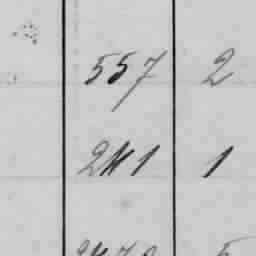 557 2
241 1